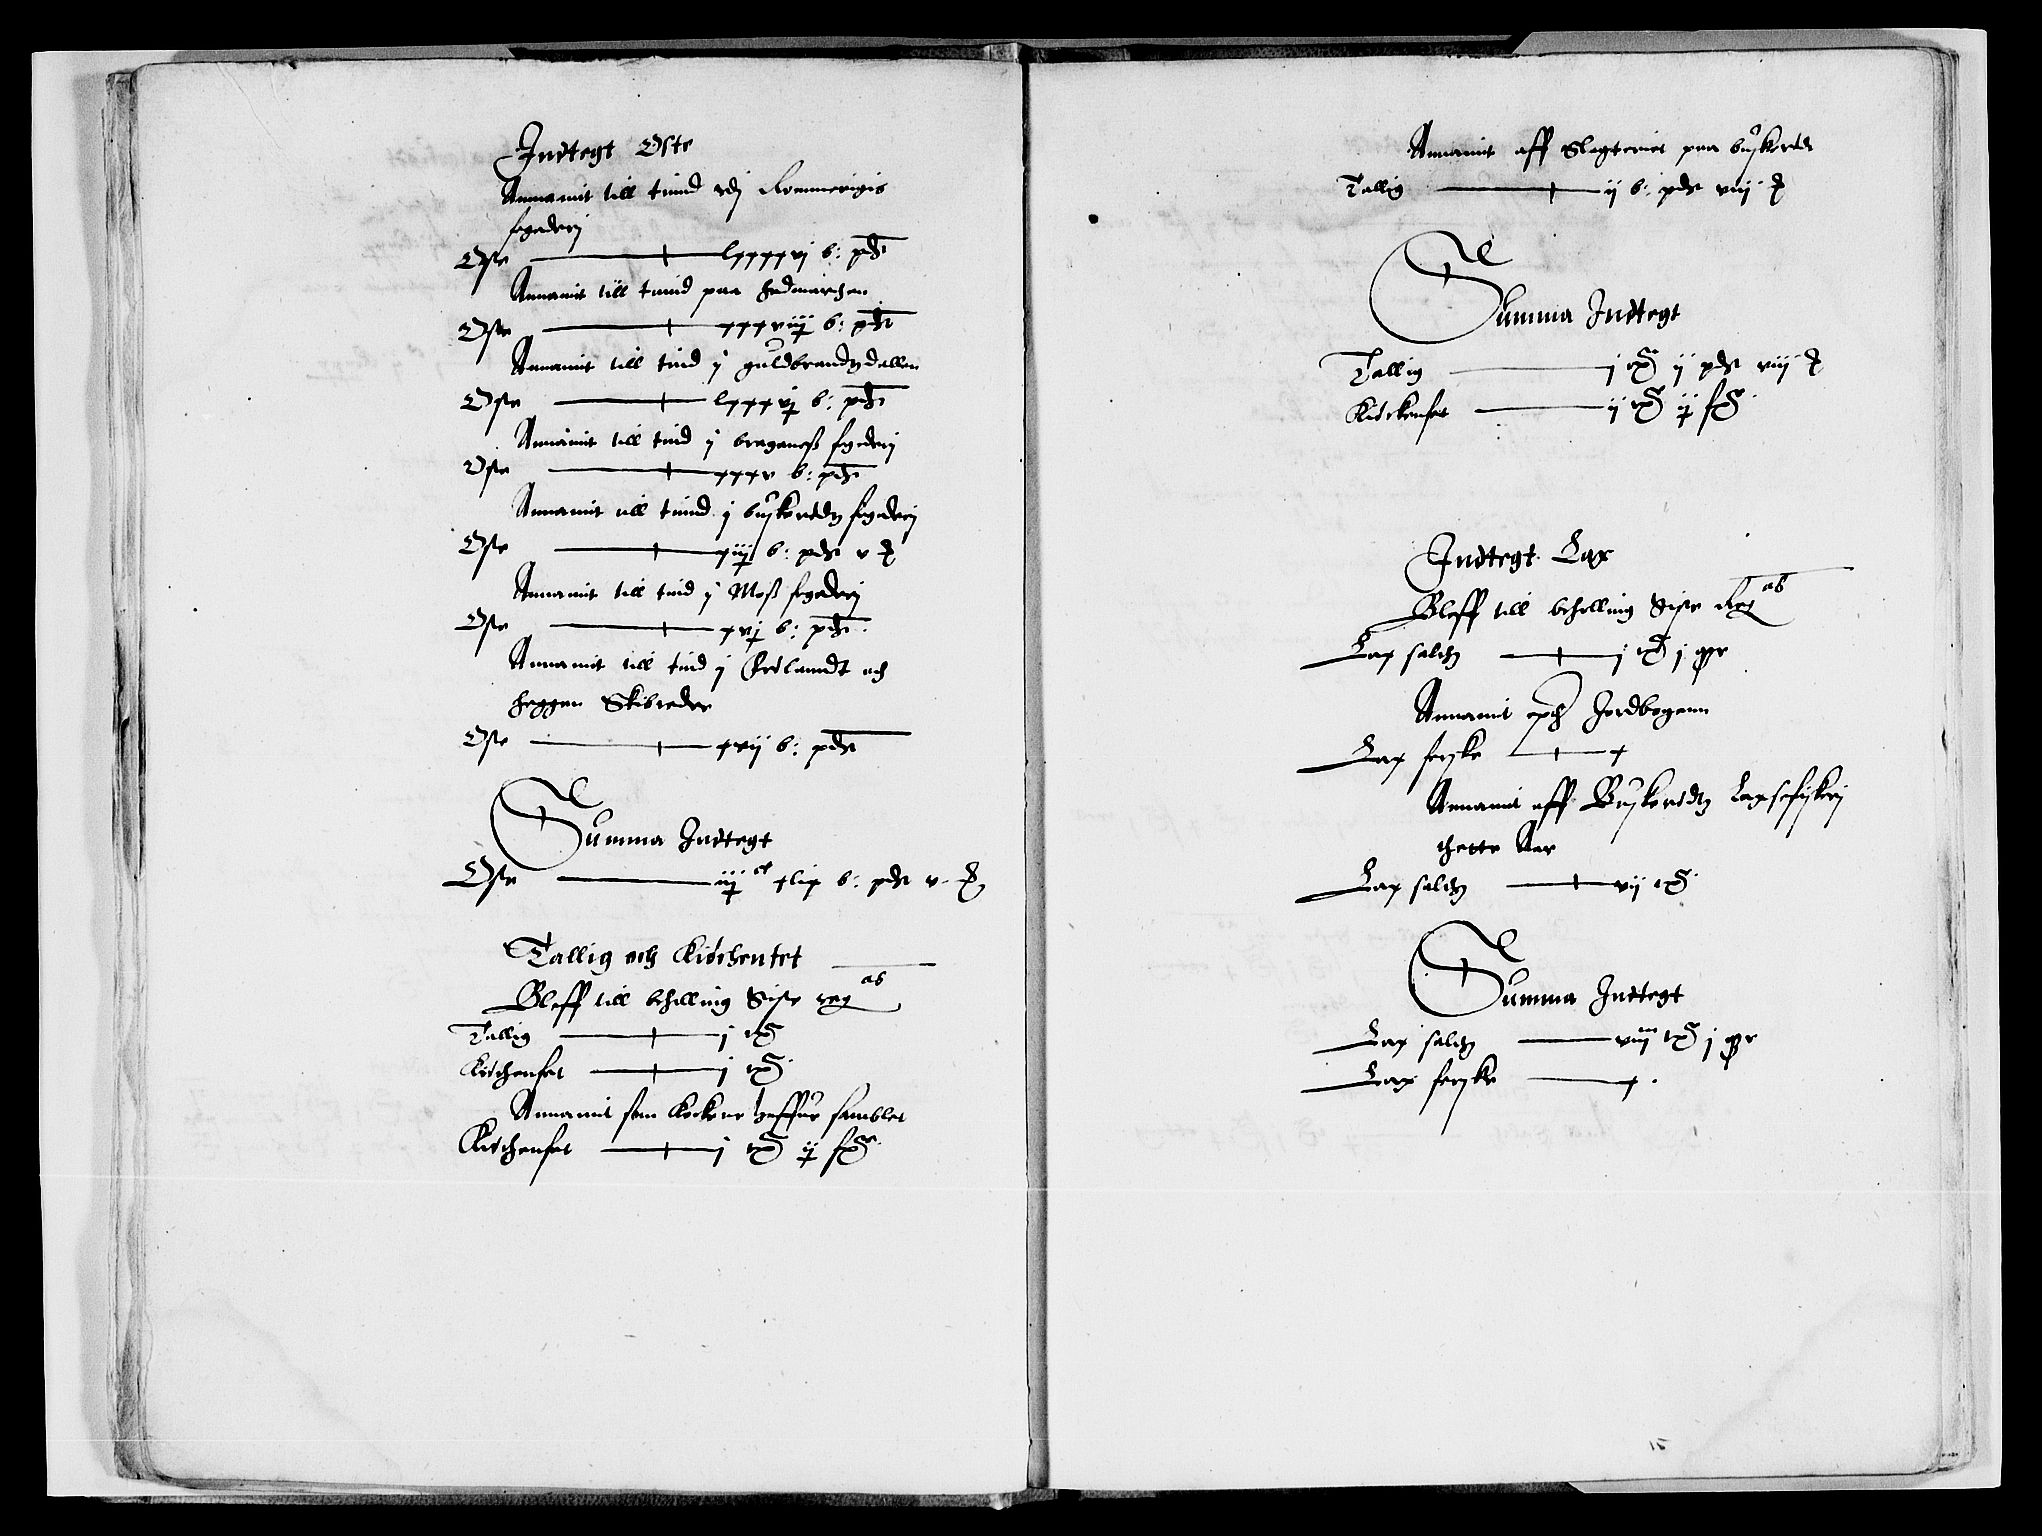 Indtegt Oste
Annamit till tiend vdj Rommerigis
fogederj
Oste lxxxxvj b: pd:
Annamit till tiend paa hedmarchen
Oste xxxviij b: pd:
Annamit till tiend y guldbrandzdallen
Oste lxxxvj b: pd:
Annamit till tiend y bragnes fogederj
Oste xxxv b: pd:
Annamit till tiend j buskerudz fogederj
Oste xiij b: pd: v
Annamit till tiend y Moss fogederj
Oste xvj b: pd:
Annamit till tiend y och
heggen Skibreder
Oste xvij b: pd:
Summa Indtegt
Oste iij ct xlix b: pd: v
Tallig och Kiøchenfet
Bleff till beholling Siste reg ab
Tallig j
Kiøchenfet j
Annamit som Kockene haffuer samblet
Kiøchenfet j ij
Annamit aff Slagteriet paa buskerud
Tallig ij b: pd: viij
Summa Indtegt
Tallig j ij pd: viij
Kiøckenfet ij ij
Indtegt Lax
Bleff till beholling Siste Reg ab
Lax saltz j j
Annamit epth Jordbogenn
Lax ferske x
Annamit aff Buskerudz Laxsefiskerj
thette Aar
Lax saltz vij
Summa Indtegt
Lax saltz viij j
Lax ferske x